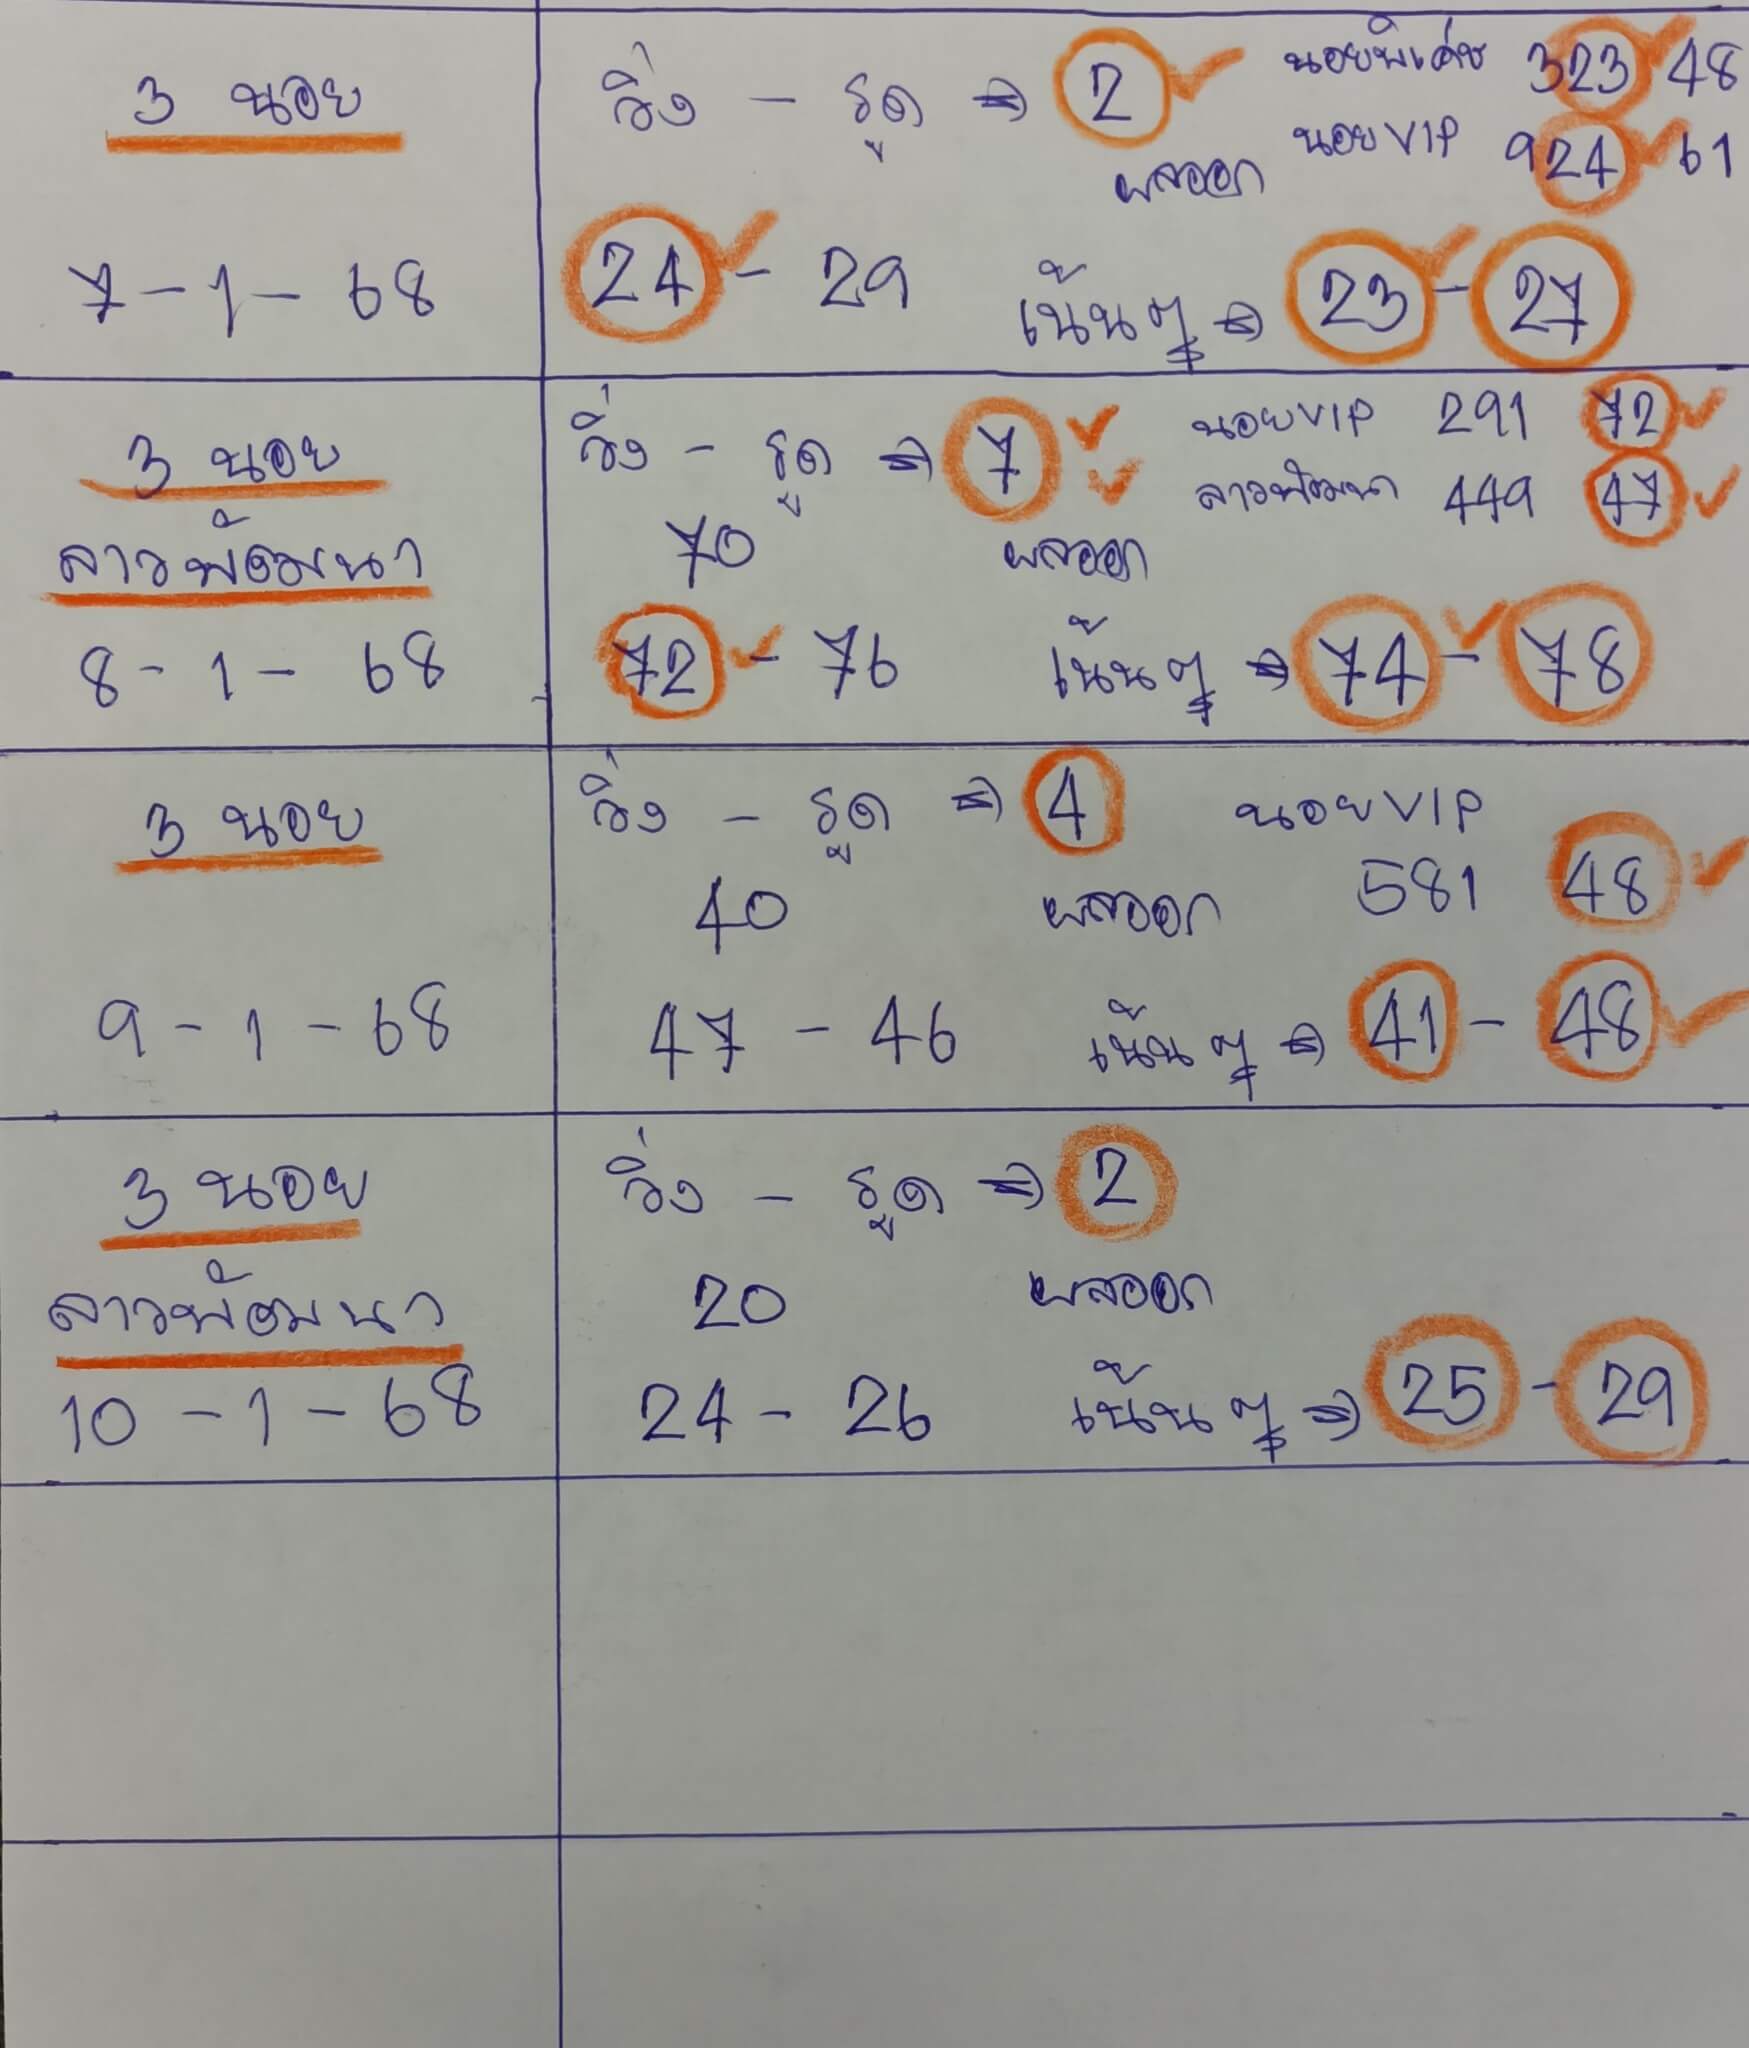 3 นอย
วิ่ง - รูด ⇒ 2 ✓
นอยพิเศษ 323 ✓ 48
นอย VIP 924 ✓ 61
ผลออก
7 - 1 - 68
24 ✓ - 29
เน้นๆ ⇒ 23 ✓ - 27
3 นอย
ลาวพัฒนา
8 - 1 - 68
วิ่ง - รูด ⇒ 7 ✓ ✓
นอย VIP 291 72 ✓
ลาวพัฒนา 449 47 ✓
70
ผลออก
72 ✓ - 76
เน้นๆ ⇒ 74 ✓ - 78
3 นอย
9 - 1 - 68
วิ่ง - รูด ⇒ 4
นอย VIP
581 48 ✓
40
ผลออก
47 - 46
เน้นๆ ⇒ 41 - 48 ✓
3 นอย
ลาวพัฒนา
10 - 1 - 68
วิ่ง - รูด ⇒ 2
20
ผลออก
24 - 26
เน้นๆ ⇒ 25 - 29